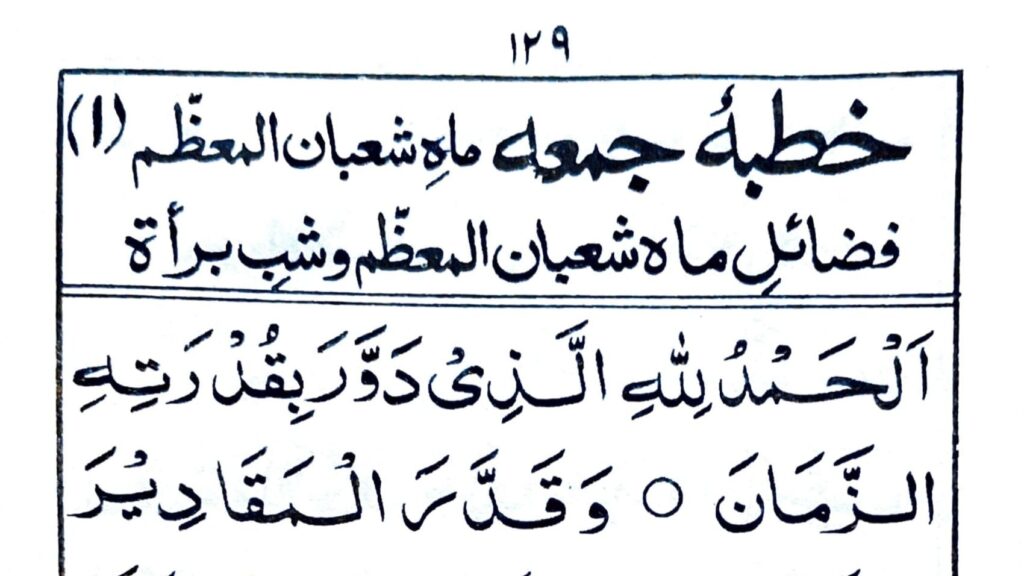 ١٢٩
خطبۂ جمعہ ماہِ شعبان المعظّم (١)
فضائلِ ماہ شعبان المعظّم و شبِ برأة
اَلْحَمْدُ لِلّٰهِ الَّذِىْ دَوَّرَ بِقُدْرَتِهِ
الزَّمَانَ ○ وَقَدَّرَ الْمَقَادِيْرَ